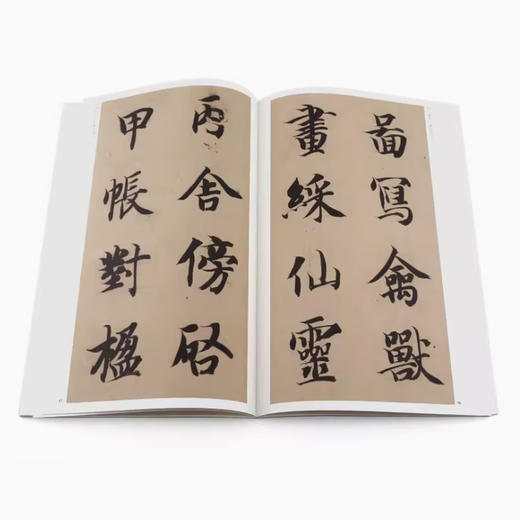 啚寫禽獸
畫綵仙靈
丙舍傍啓
甲帳對楹